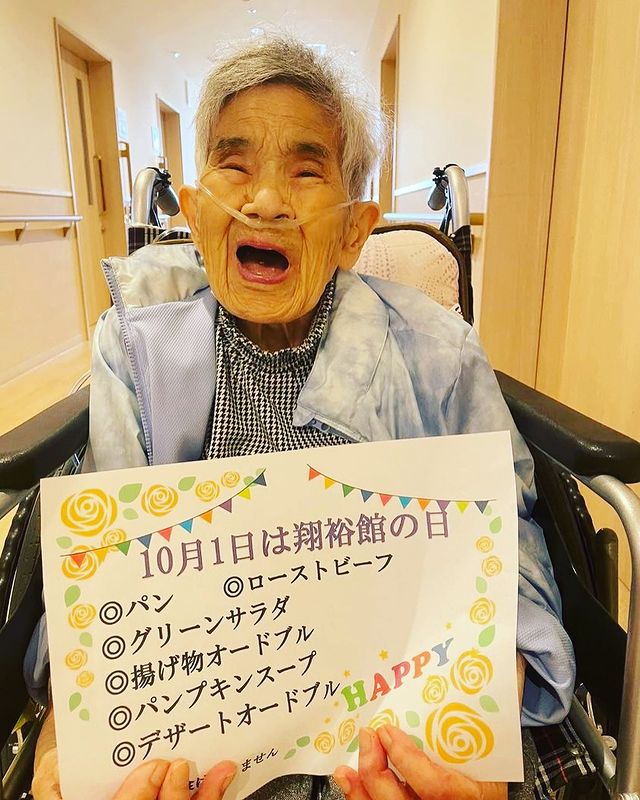 10月1日は翔裕館の日
◎パン ◎ローストビーフ
◎グリーンサラダ
◎揚げ物オードブル
◎パンプキンスープ
◎デザートオードブル
HAPPY
ません